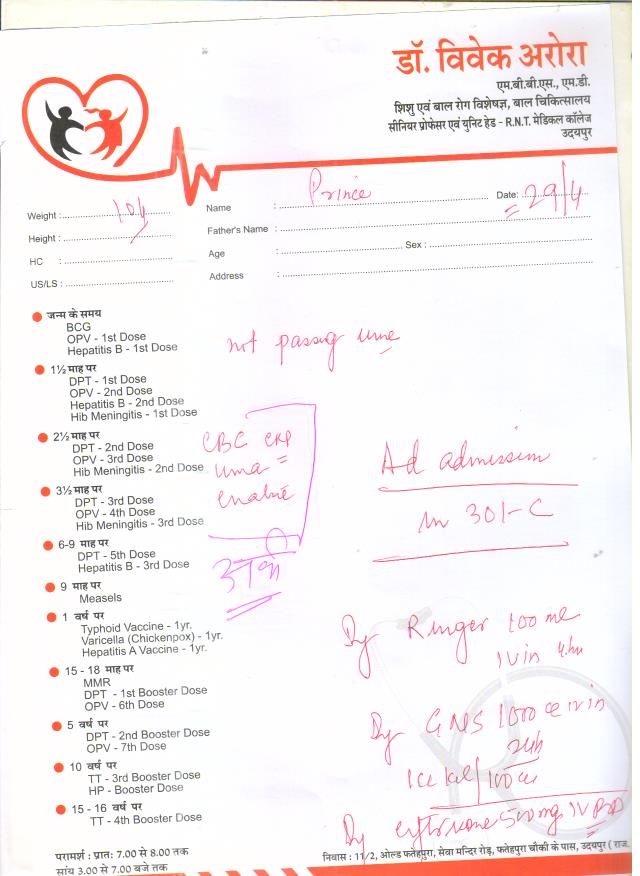 डॉ. विवेक अरोरा
एम.बी.बी.एस., एम.डी.
शिशु एवं बाल रोग विशेषज्ञ, बाल चिकित्सालय
सीनियर प्रोफेसर एवं यूनिट हेड - R.N.T. मेडिकल कॉलेज
उदयपुर
Weight :
Height :
HC :
US/LS :
Name : Prince Date: 29/4
Father's Name :
Age : Sex :
Address :
जन्म के समय
BCG
OPV - 1st Dose
Hepatitis B - 1st Dose
not passing urine
1½ माह पर
DPT - 1st Dose
OPV - 2nd Dose
Hepatitis B - 2nd Dose
Hib Meningitis - 1st Dose
2½ माह पर
DPT - 2nd Dose
OPV - 3rd Dose
Hib Meningitis - 2nd Dose
3½ माह पर
DPT - 3rd Dose
OPV - 4th Dose
Hib Meningitis - 3rd Dose
CBC CRP
urea
creatine
अभी
Ad admission
in 301-C
6-9 माह पर
DPT - 5th Dose
Hepatitis B - 3rd Dose
9 माह पर
Measels
1 वर्ष पर
Typhoid Vaccine - 1yr.
Varicella (Chickenpox) - 1yr.
Hepatitis A Vaccine - 1yr.
15 - 18 माह पर
MMR
DPT - 1st Booster Dose
OPV - 6th Dose
5 वर्ष पर
DPT - 2nd Booster Dose
OPV - 7th Dose
10 वर्ष पर
TT - 3rd Booster Dose
HP - Booster Dose
15 - 16 वर्ष पर
TT - 4th Booster Dose
Ringer 100 ml
IV in 4 hr
GNS 1000 cc IV in
24h
1cc kcl/100cc
500mg IV BD
परामर्श : प्रातः 7.00 से 8.00 तक
सांय 3.00 से 7.00 बजे तक
निवास : 11/2, ओल्ड फतेहपुरा, सेवा मन्दिर रोड़, फतेहपुरा चौकी के पास, उदयपुर ( राज.